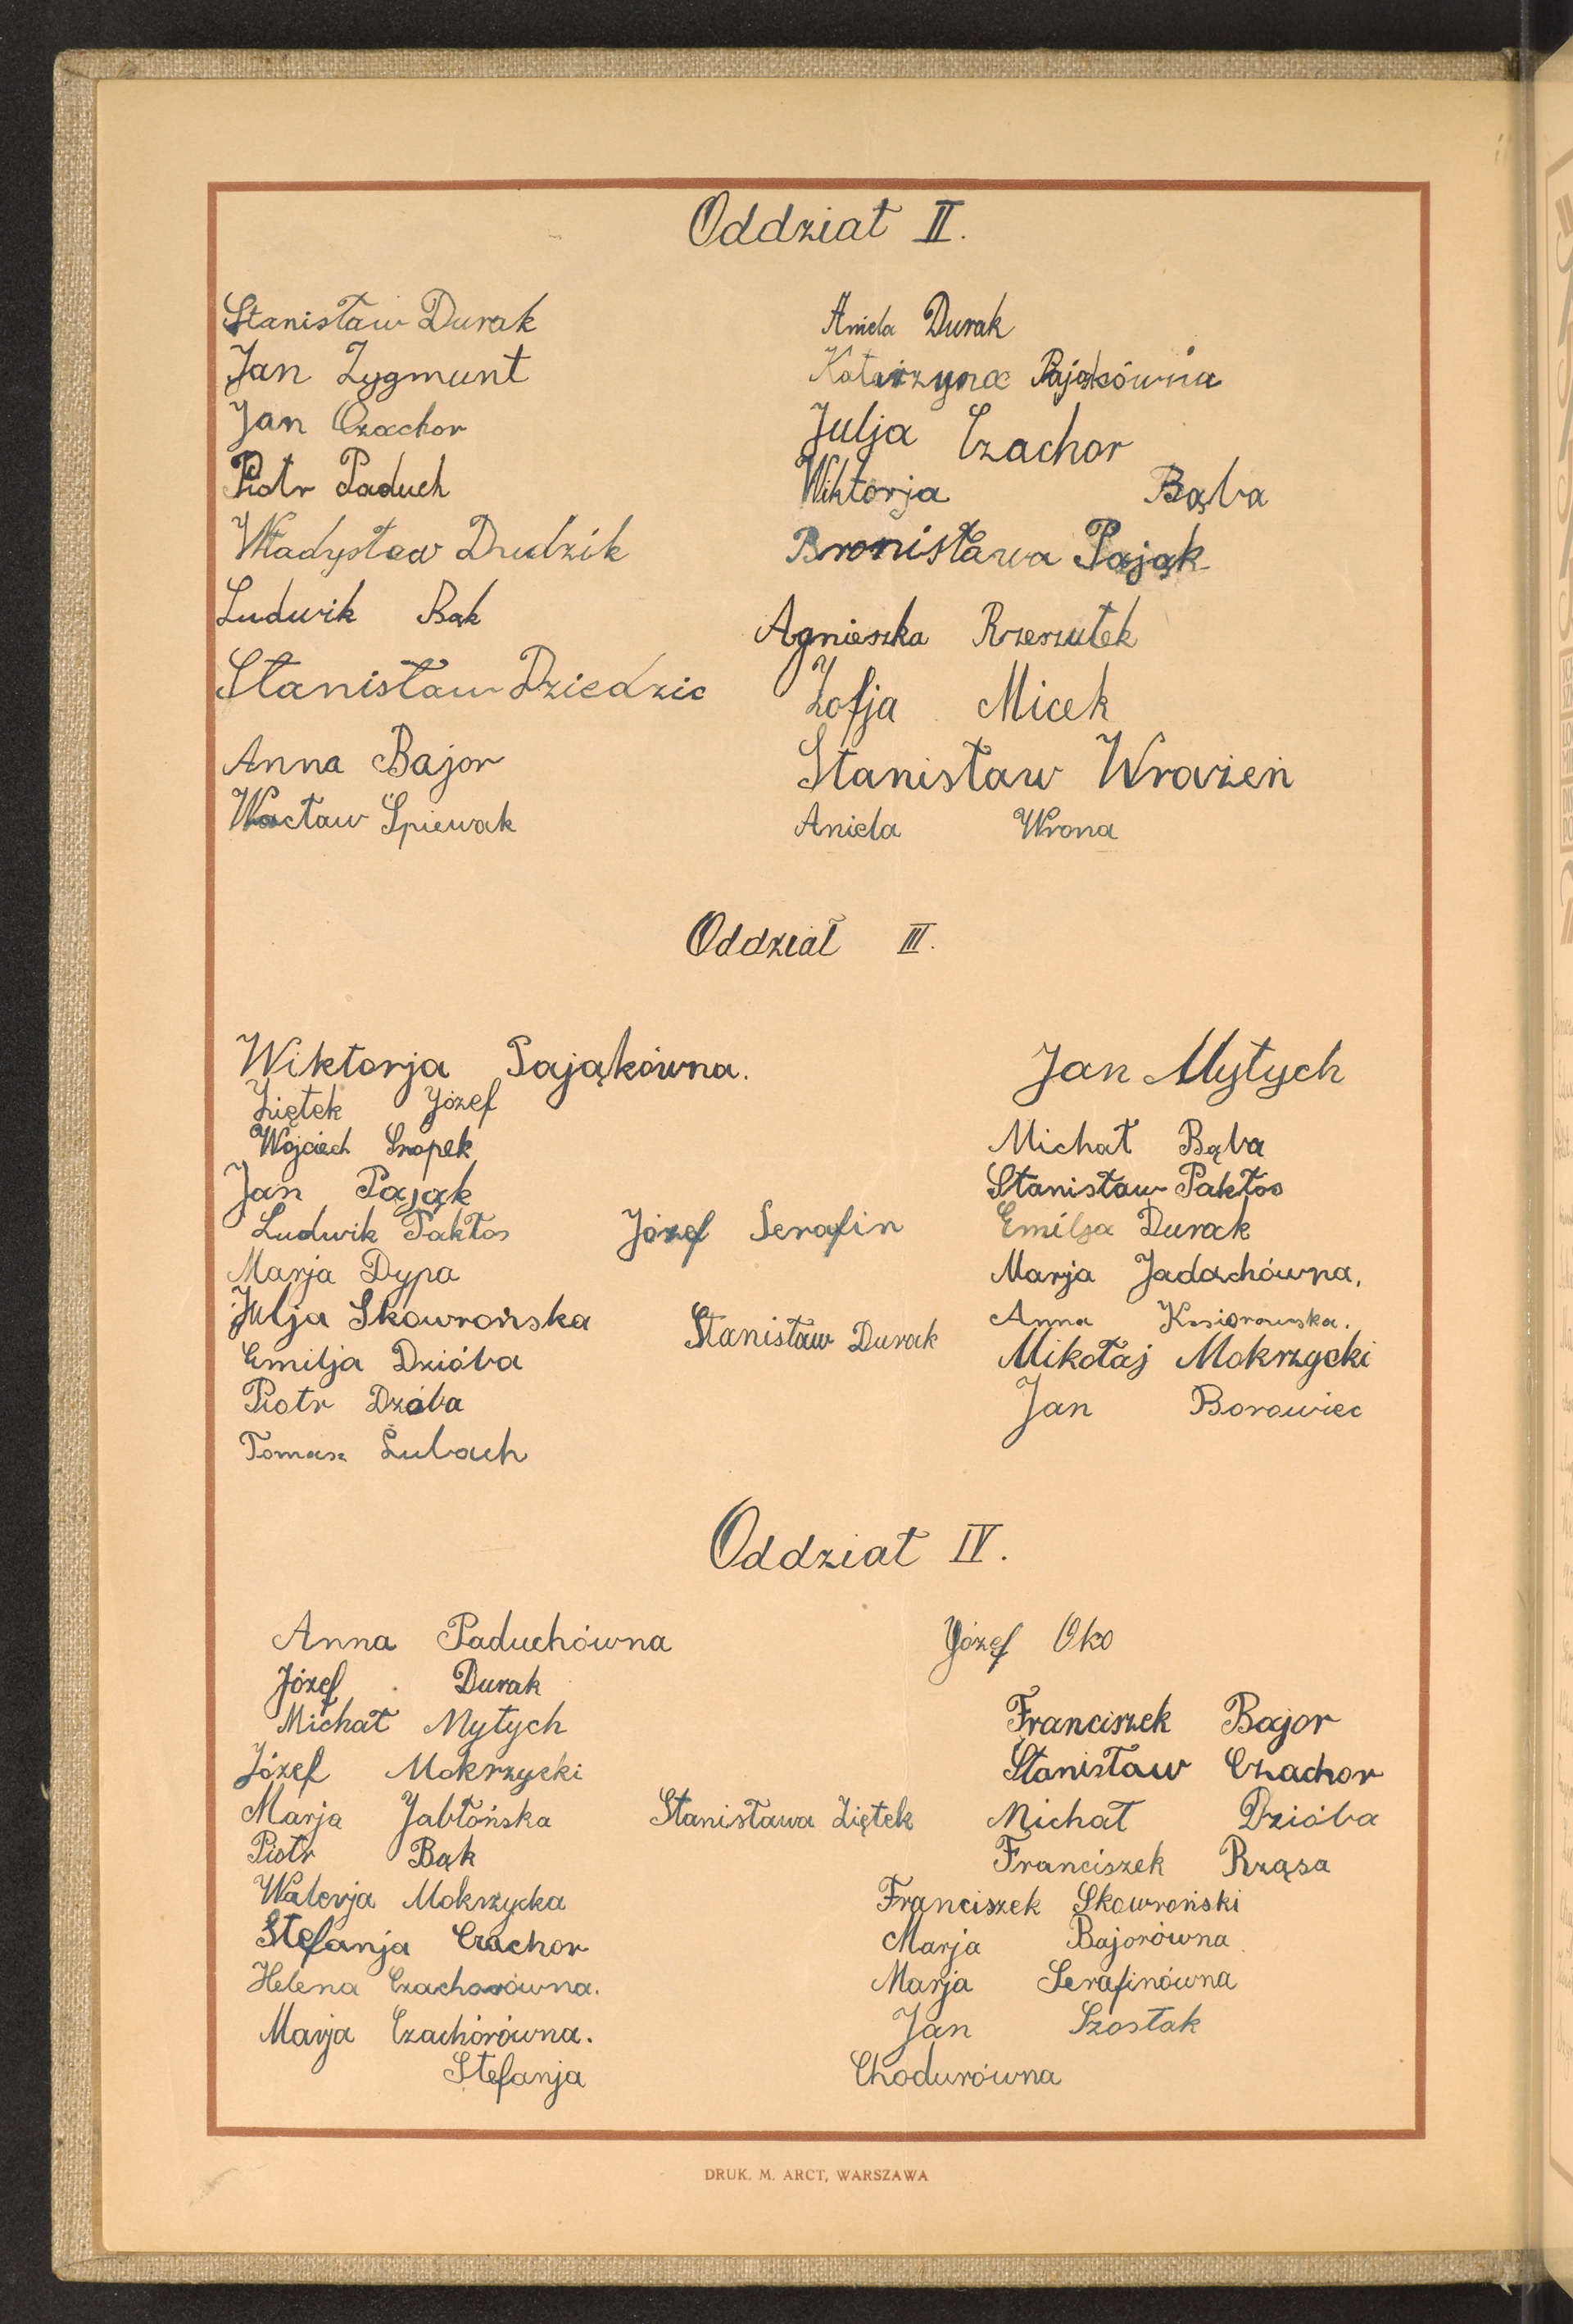 Oddział II.
Stanisław Durak
Jan Zygmunt
Jan Czachor
Piotr Paduch
Władysław Dudzik
Ludwik Bąk
Stanisław Dziedzic
Anna Bajor
Wacław Śpiewak
Aniela Durak
Katarzyna Pająkówna
Julja Czachor
Wiktorja Bąba
Bronisława Pająk
Agnieszka Rzeszutek
Zofja Micek
Stanisław Wrażeń
Aniela Wrona
Oddział III.
Wiktorja Pająkówna.
Ziętek Józef
Wojciech Snopek
Jan Pająk
Ludwik Pakłos
Marja Dypa
Julja Skowrońska
Emilja Dzióba
Piotr Dzóba
Tomasz Żubach
Józef Serafin
Stanisław Durak
Jan Mytych
Michał Bąba
Stanisław Pakłos
Emilja Durak
Marja Jadachówna,
Anna Kosiorowska.
Mikołaj Mokrzycki
Jan Borowiec
Oddział IV.
Anna Paduchówna
Józef Durak
Michał Mytych
Józef Mokrzycki
Marja Jabłońska
Piotr Bąk
Walerja Mokrzycka
Stefanja Czachor
Helena Czachorówna.
Marja Czachórówna.
Stanisława Ziętek
Józef Oko
Franciszek Bajor
Stanisław Czachor
Michał Dzióba
Franciszek Rząsa
Franciszek Skowroński
Marja Bajorówna
Marja Serafinówna
Jan Szostak
Stefanja Chodurówna
DRUK. M. ARCT, WARSZAWA